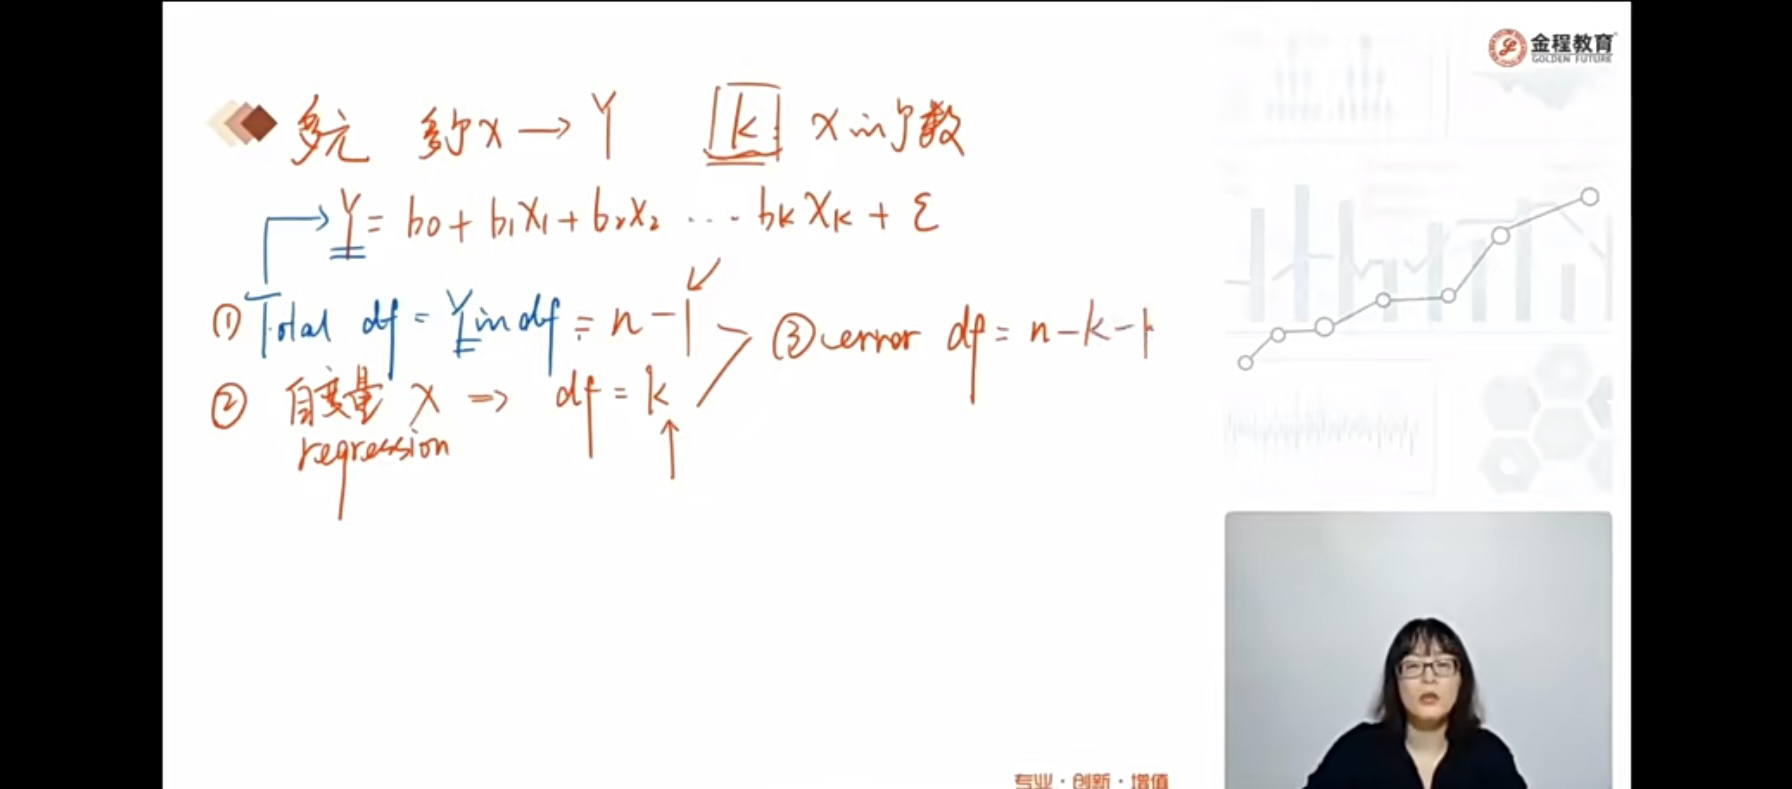 金程教育
GOLDEN FUTURE
多元 多个X → Y k X的个数
Y = b0 + b1X1 + b2X2 ... bkXk + ε
① Total df = Y的df = n-1
② 自变量 X ⇒ df = k
regression
③ error df = n-k-1
专业·创新·增值